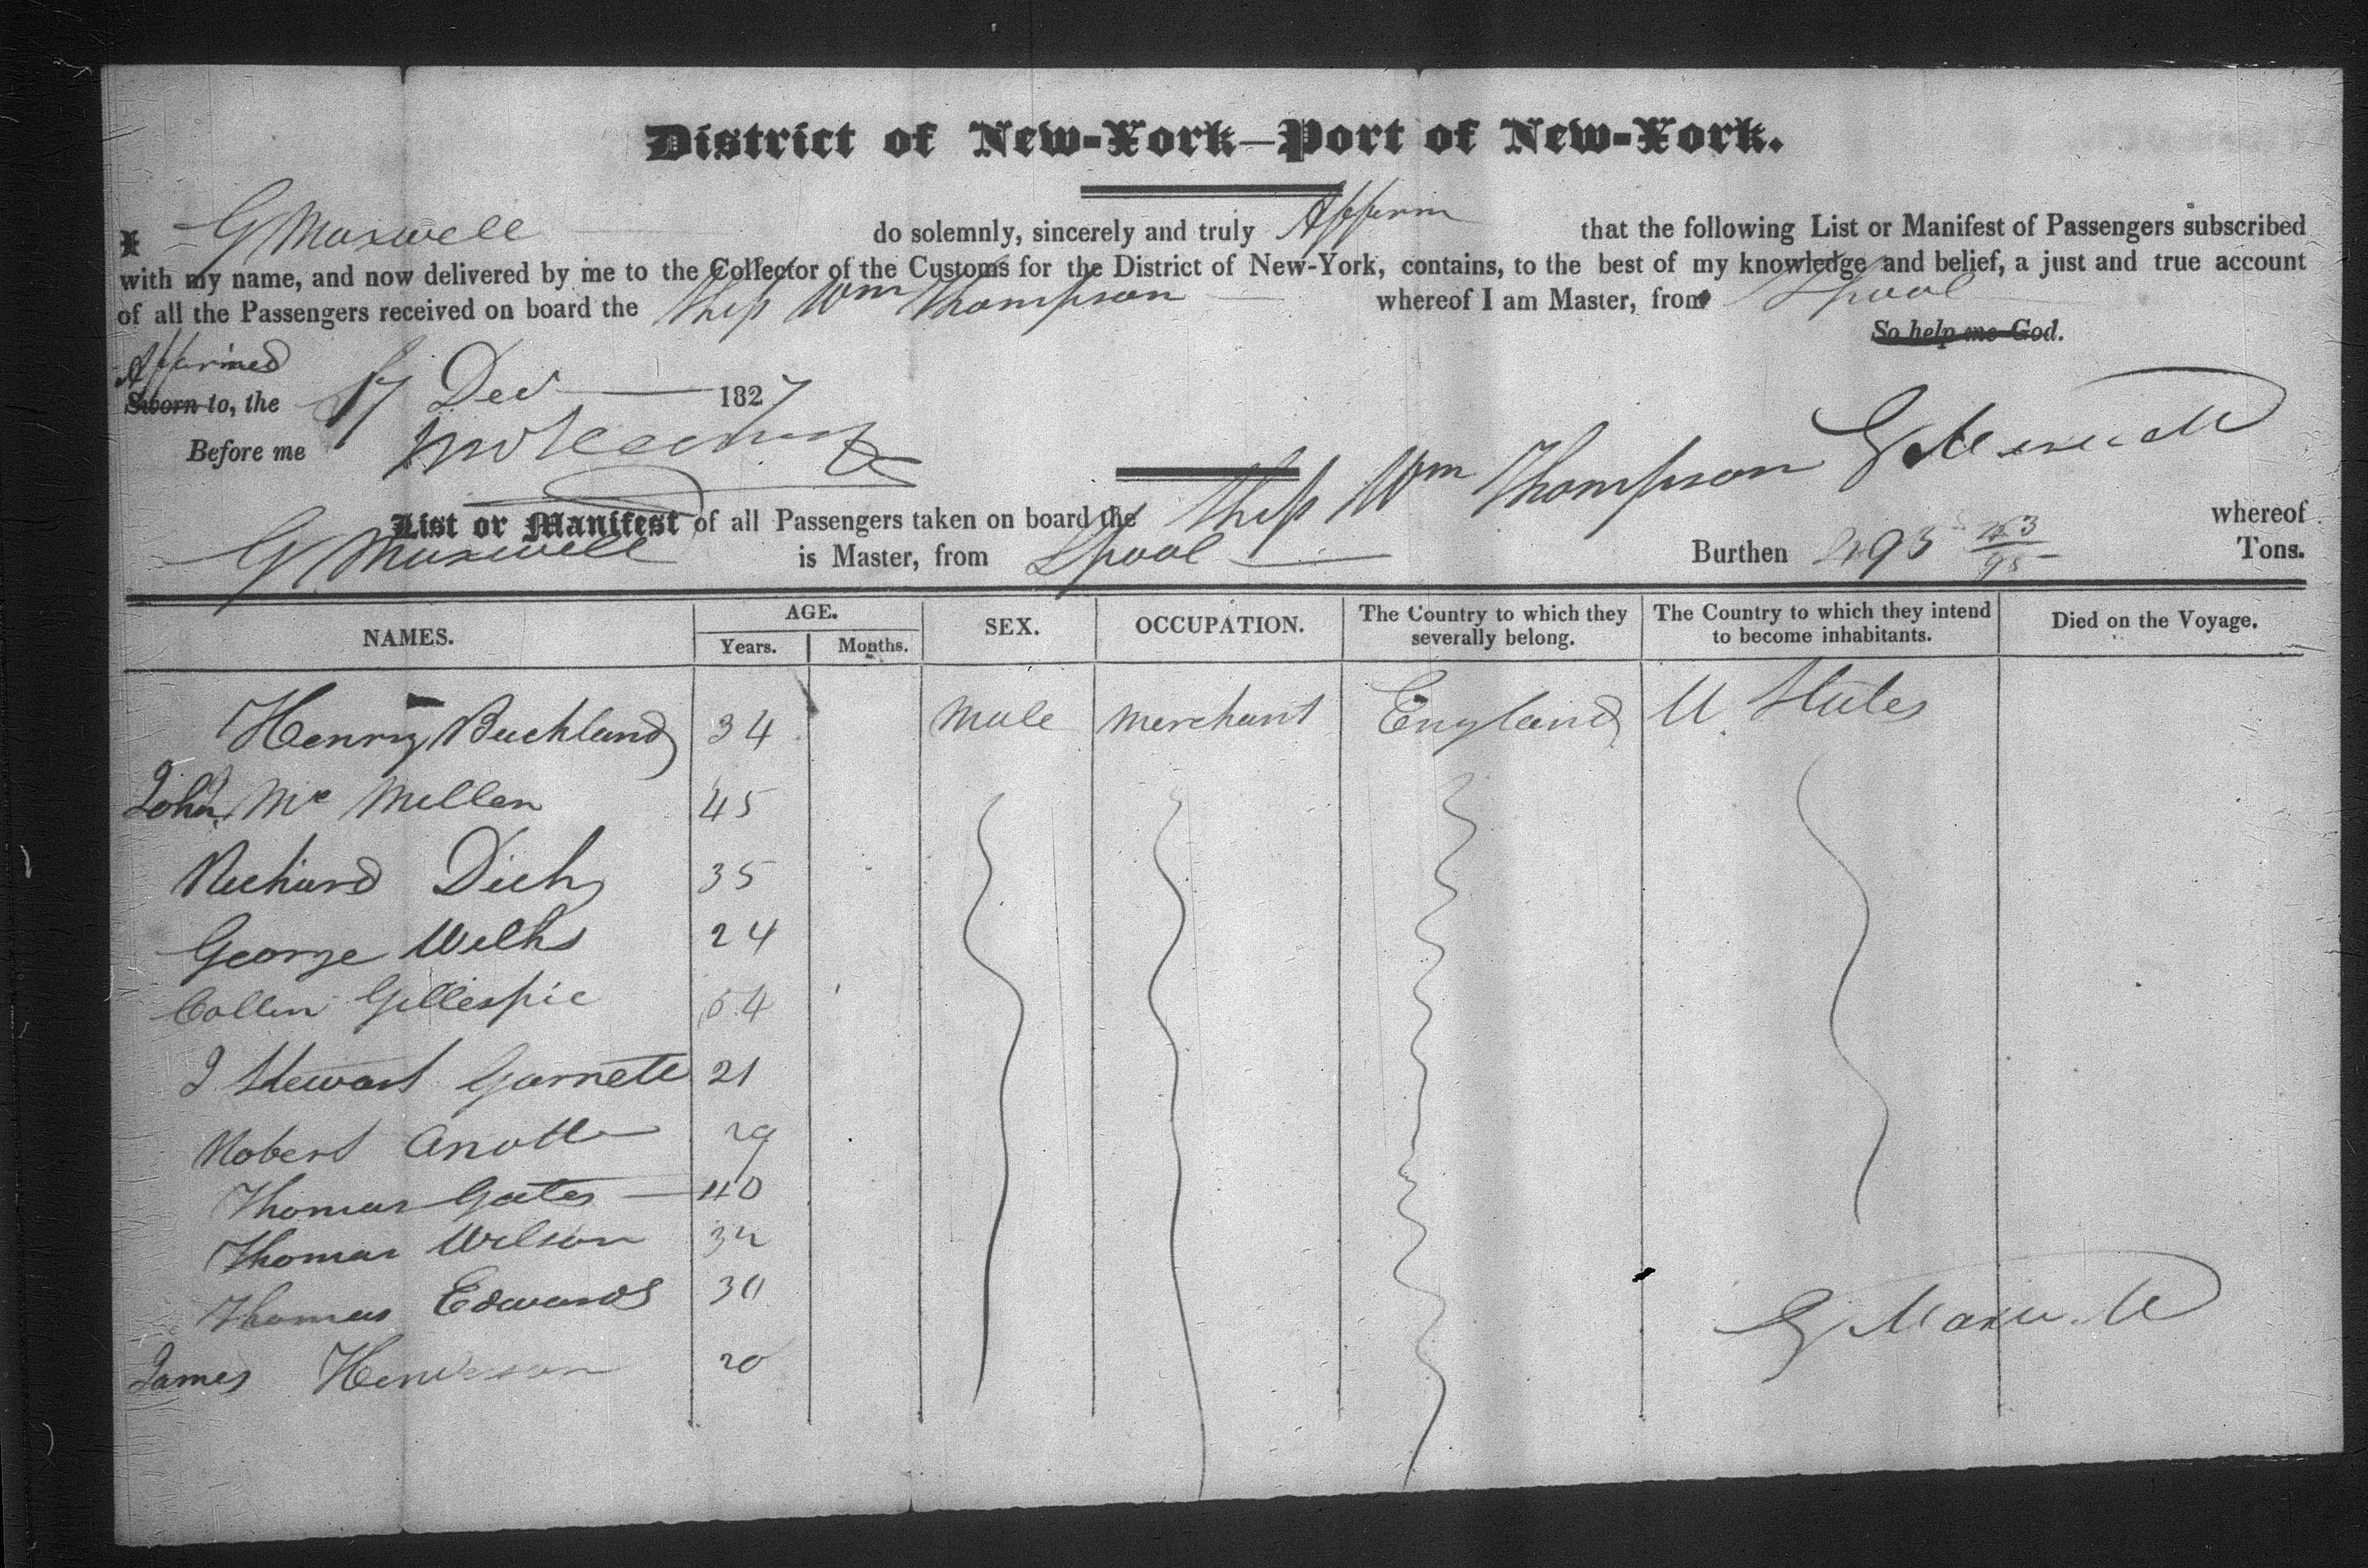 District of New-York—Port of New-York.
I G Maxwell do solemnly, sincerely and truly Affirm that the following List or Manifest of Passengers subscribed
with my name, and now delivered by me to the Collector of the Customs for the District of New-York, contains, to the best of my knowledge and belief, a just and true account
of all the Passengers received on board the Ship Wm Thompson whereof I am Master, from Lpool
So help me God.
Affirmed
Sworn to, the 17 Dec 1827
Before me
G Maxwell
List or Manifest of all Passengers taken on board the Ship Wm Thompson whereof
G Maxwell is Master, from Lpool Burthen 495 Tons.
NAMES. AGE. SEX. OCCUPATION. The Country to which they severally belong. The Country to which they intend to become inhabitants. Died on the Voyage.
Years. Months.
Henry Buckland 34 male merchant England U States
John Mc Millen 45
Richard 35
George Wilks 24
Collin Gillespie 54
J Stewart Garnett 21
Robert 29
Thomas Gates 40
Thomas Wilson 32
Thomas Edwards 30
James Henderson 20
G Maxwell